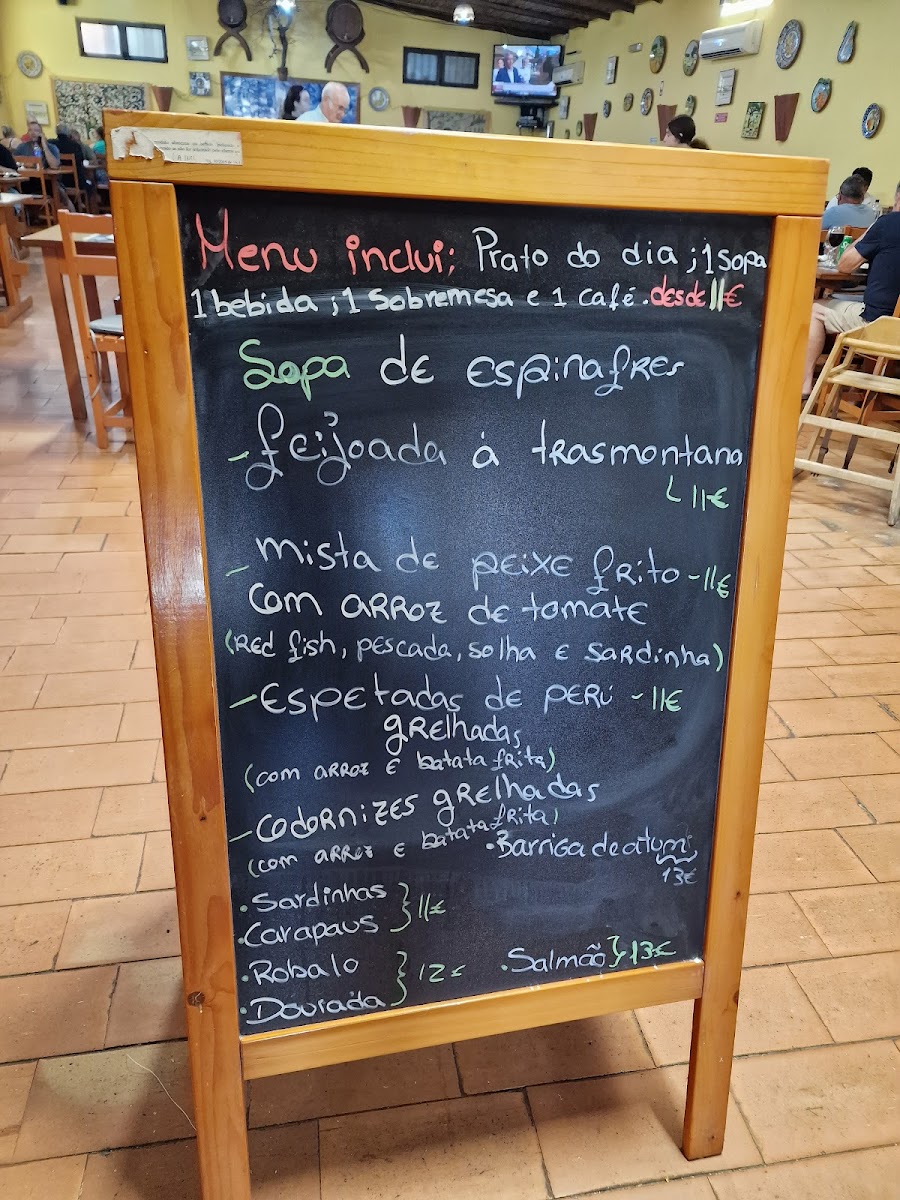 Menu inclui; Prato do dia ; 1 sopa
1 bebida ; 1 sobremesa e 1 café. desde 11€
Sopa de espinafres
- feijoada á trasmontana
11€
- mista de peixe frito - 11€
com arroz de tomate
(Red fish, pescada, solha e sardinha)
- Espetadas de peru - 11€
grelhadas
(com arroz e batata frita)
- Codornizes grelhadas
(com arroz e batata frita)
• Barriga de atum
13€
• Sardinhas
• Carapaus } 11€
• Robalo
• Dourada } 12€
• Salmão } 13€